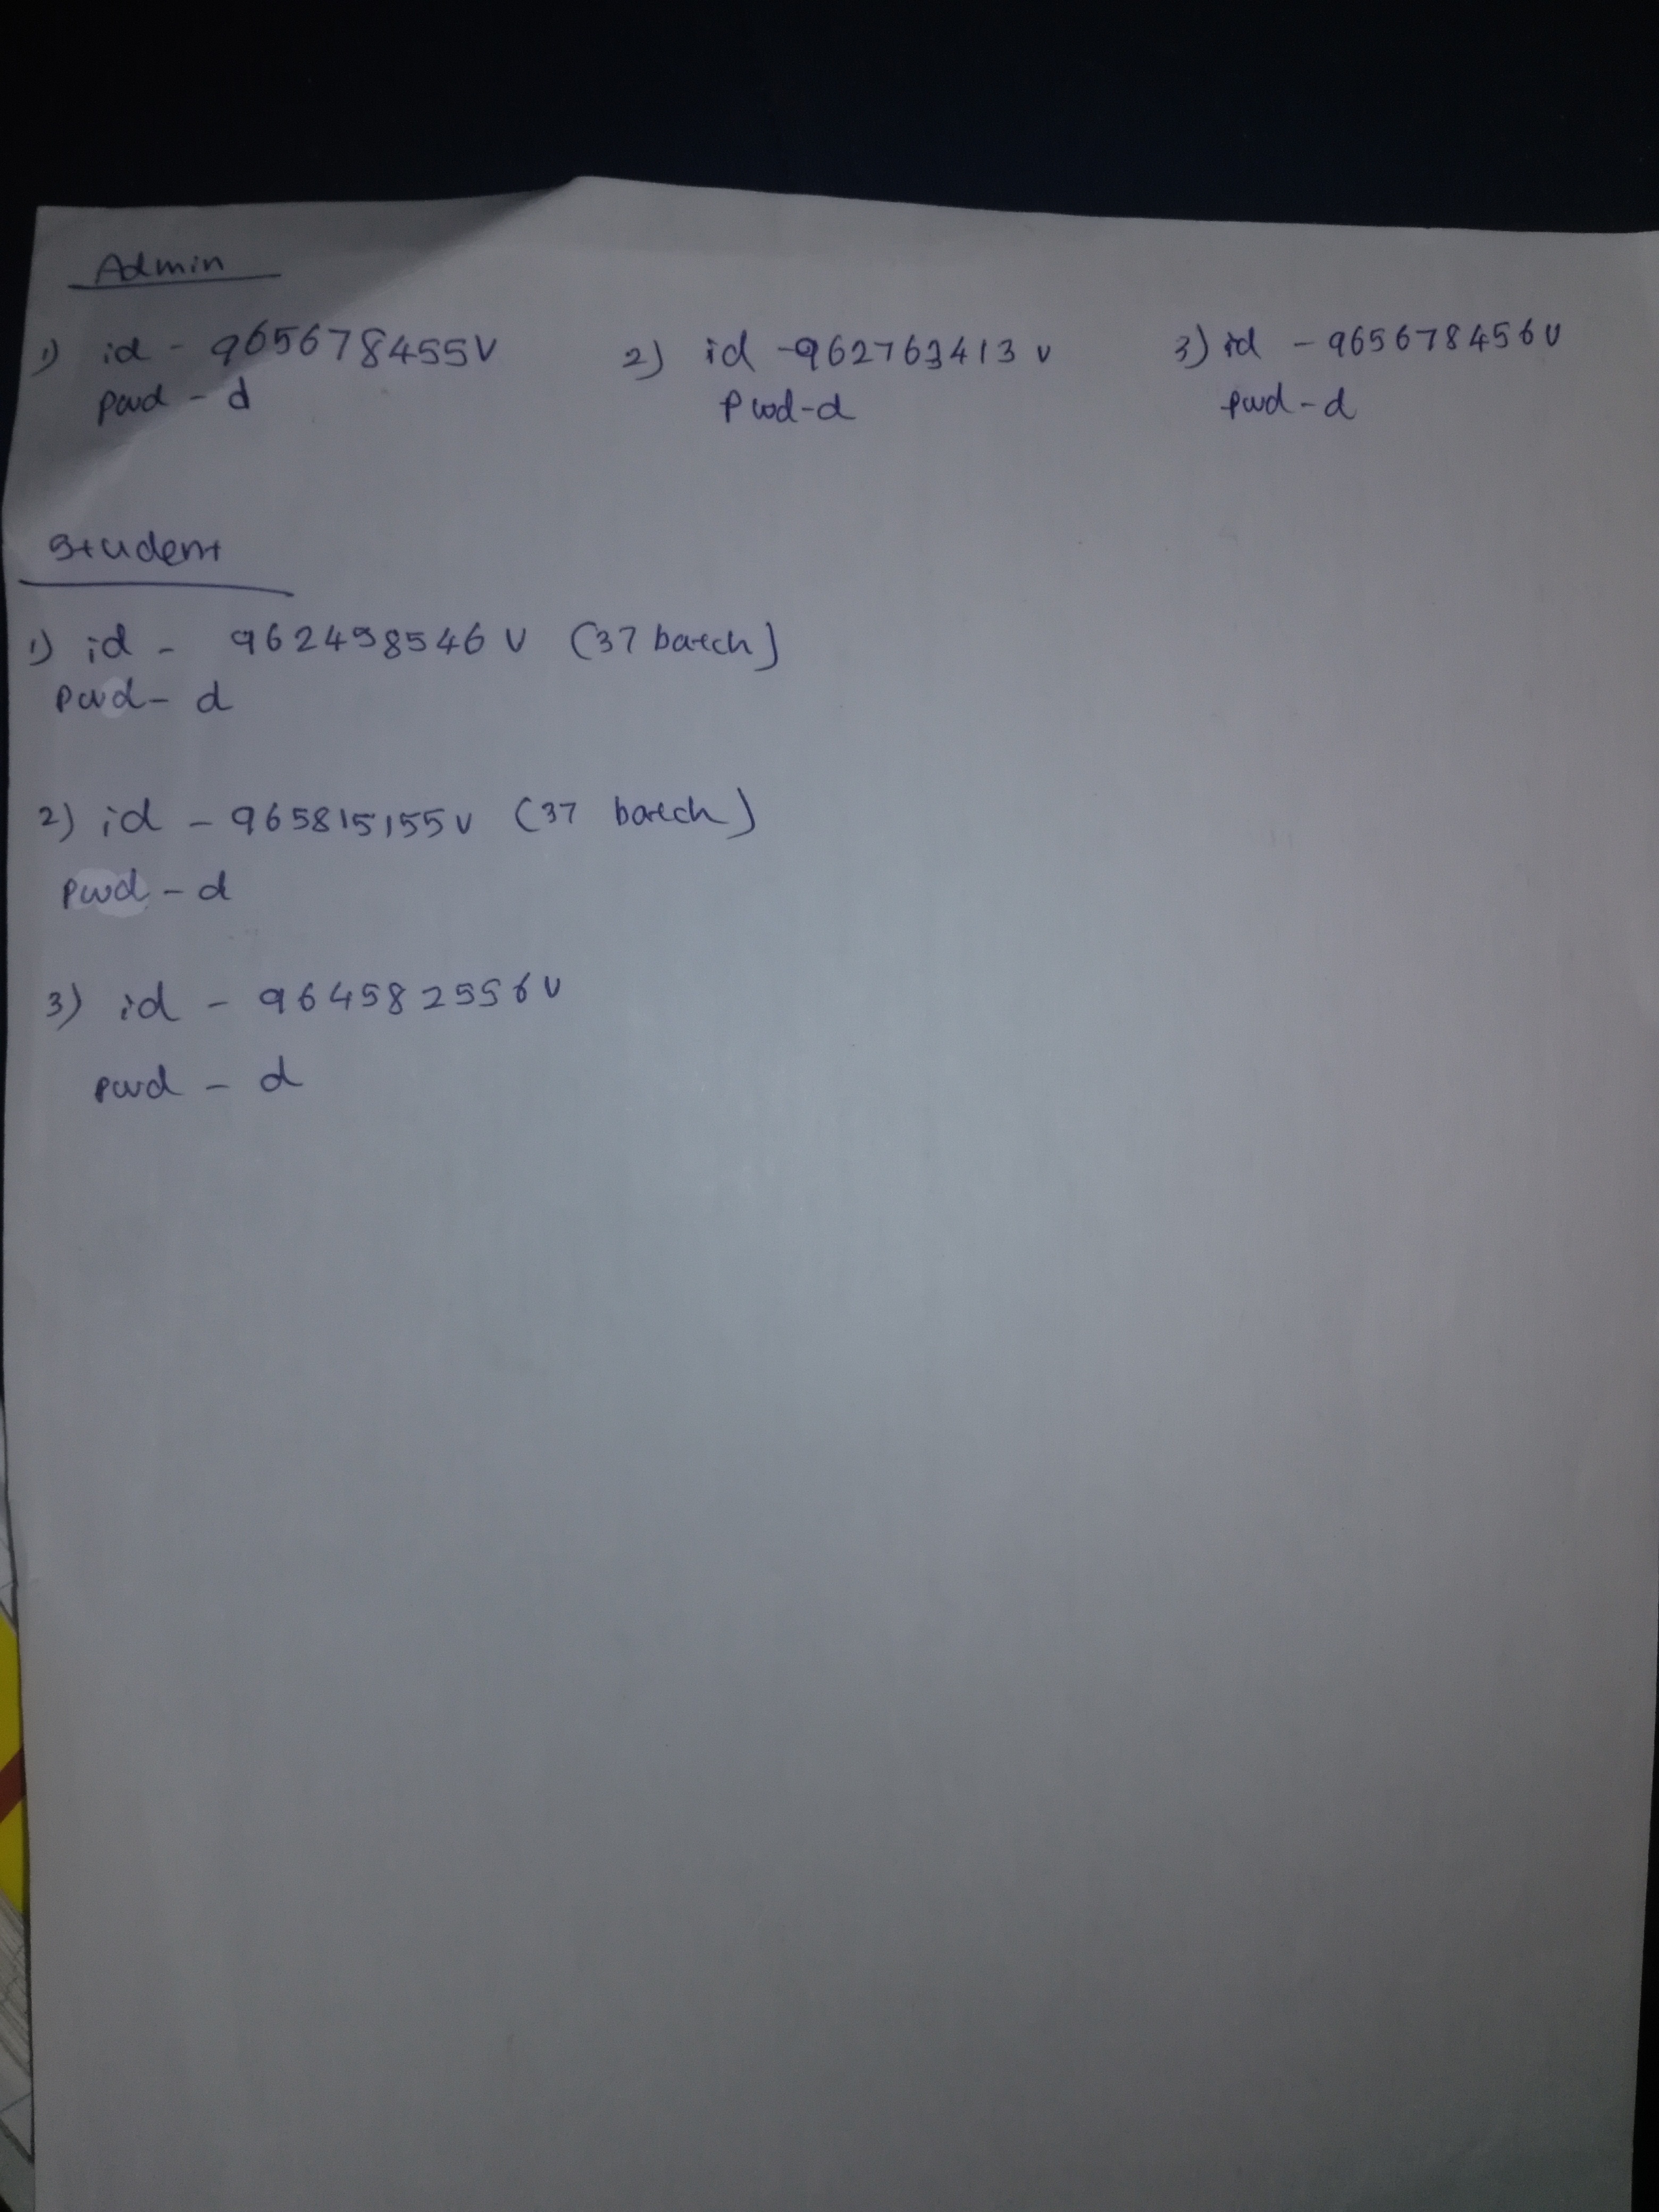 Admin
1) id - 965678455V 2) id - 962763413V 3) id - 965678456V
pwd - d Pwd-d pwd-d
Student
1) id - 962498546V (37 batch)
pwd - d
2) id - 965815155V (37 batch)
pwd - d
3) id - 964582556V
pwd - d